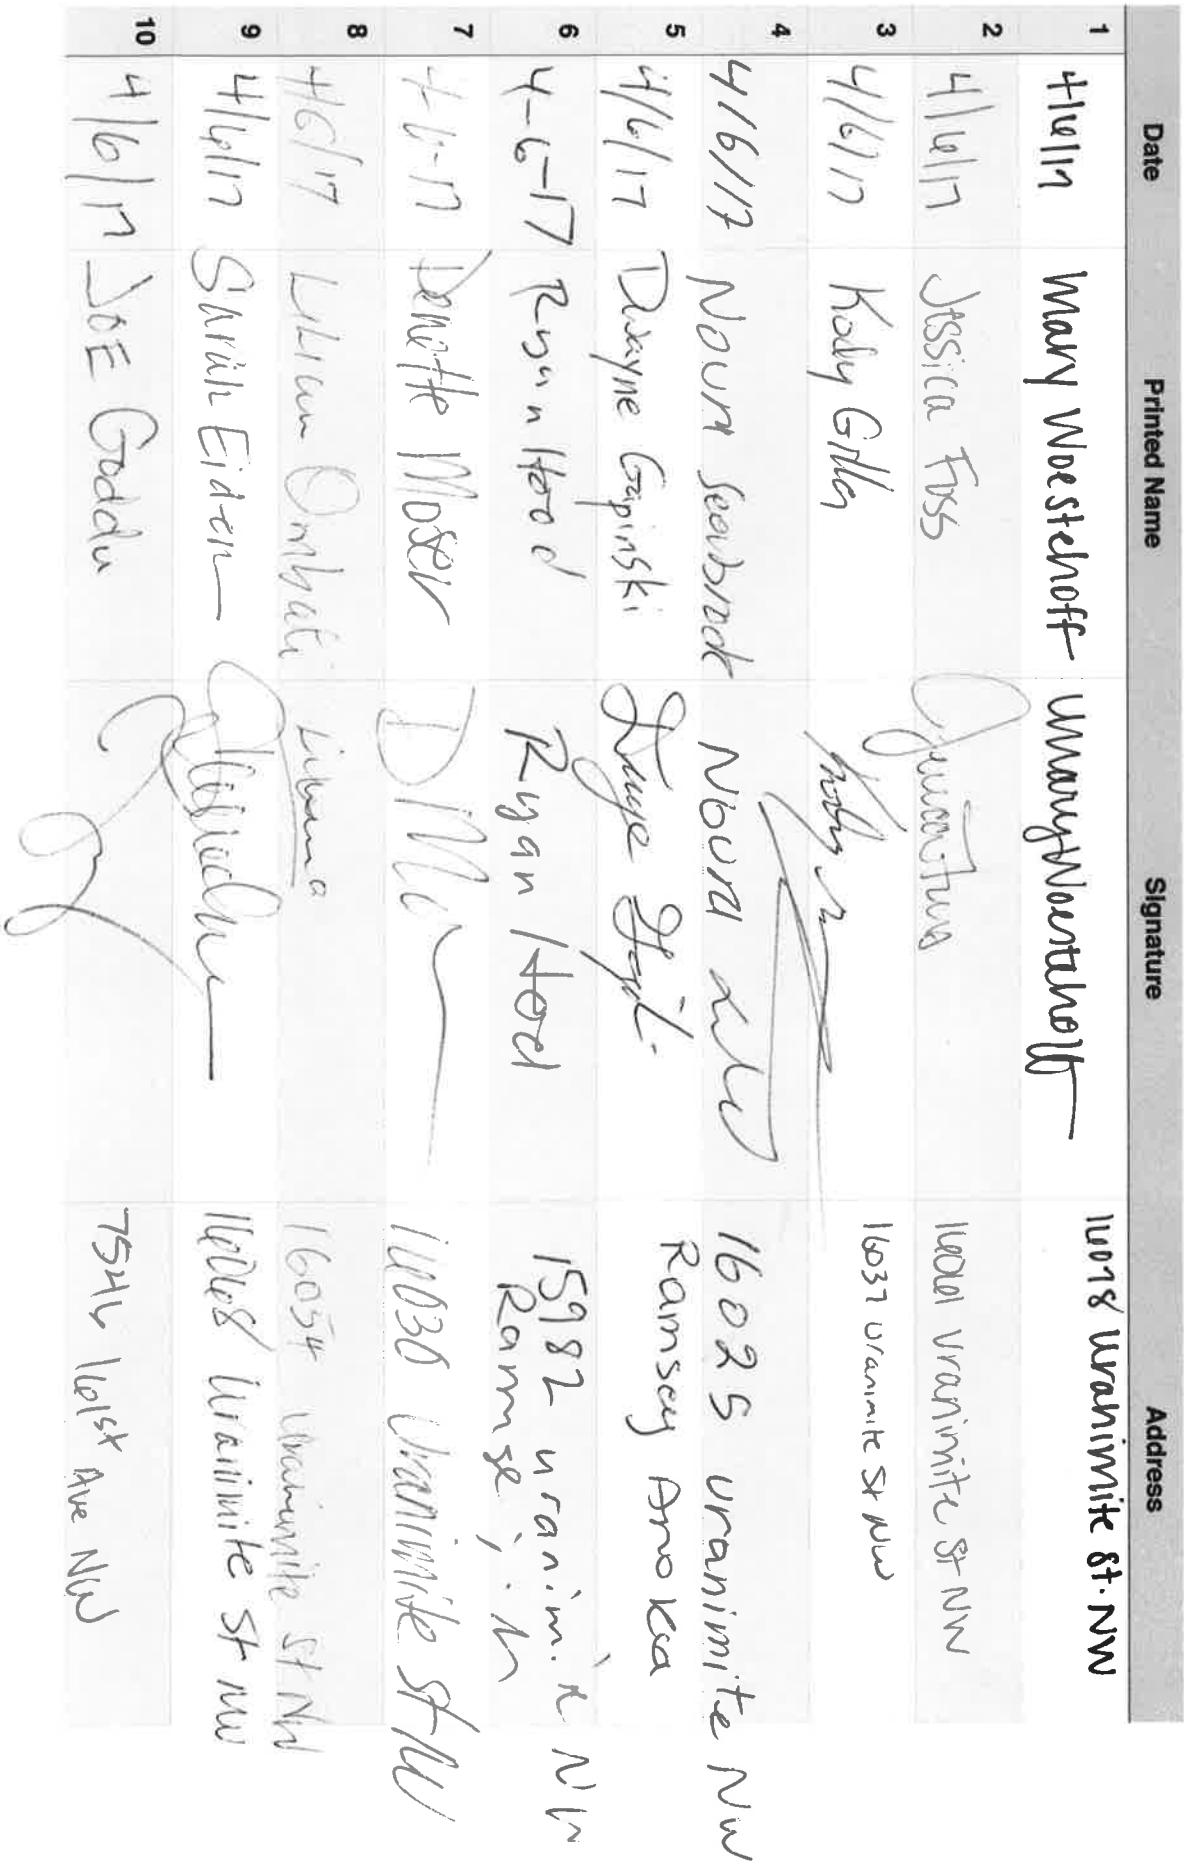 Date Printed Name Signature Address
1 4/6/17 Mary Woestehoff Mary Woestehoff 16018 Uranimite St. NW
2 4/6/17 Jessica Fuss Uranimite St NW
3 4/6/17 Kody 16037 Uranimite St NW
4 4/6/17 Noura Seabrook Noura 16025 uranimite NW
Ramsey Anoka
5 4/6/17 Dwayne Gapinski Dwayne
6 4-6-17 Ryan Hood Ryan Hood 15982 uranim. NW
7 4-6-17 Denette Moser D Mo 16030 Uranimite St NW
8 4/6/17 Lilian Ombati Liliana 16054 Uranimite St NW
9 4/6/17 Sarah Eiden 16068 Uranimite St NW
10 4/6/17 JOE Goddu 7546 161st Ave NW